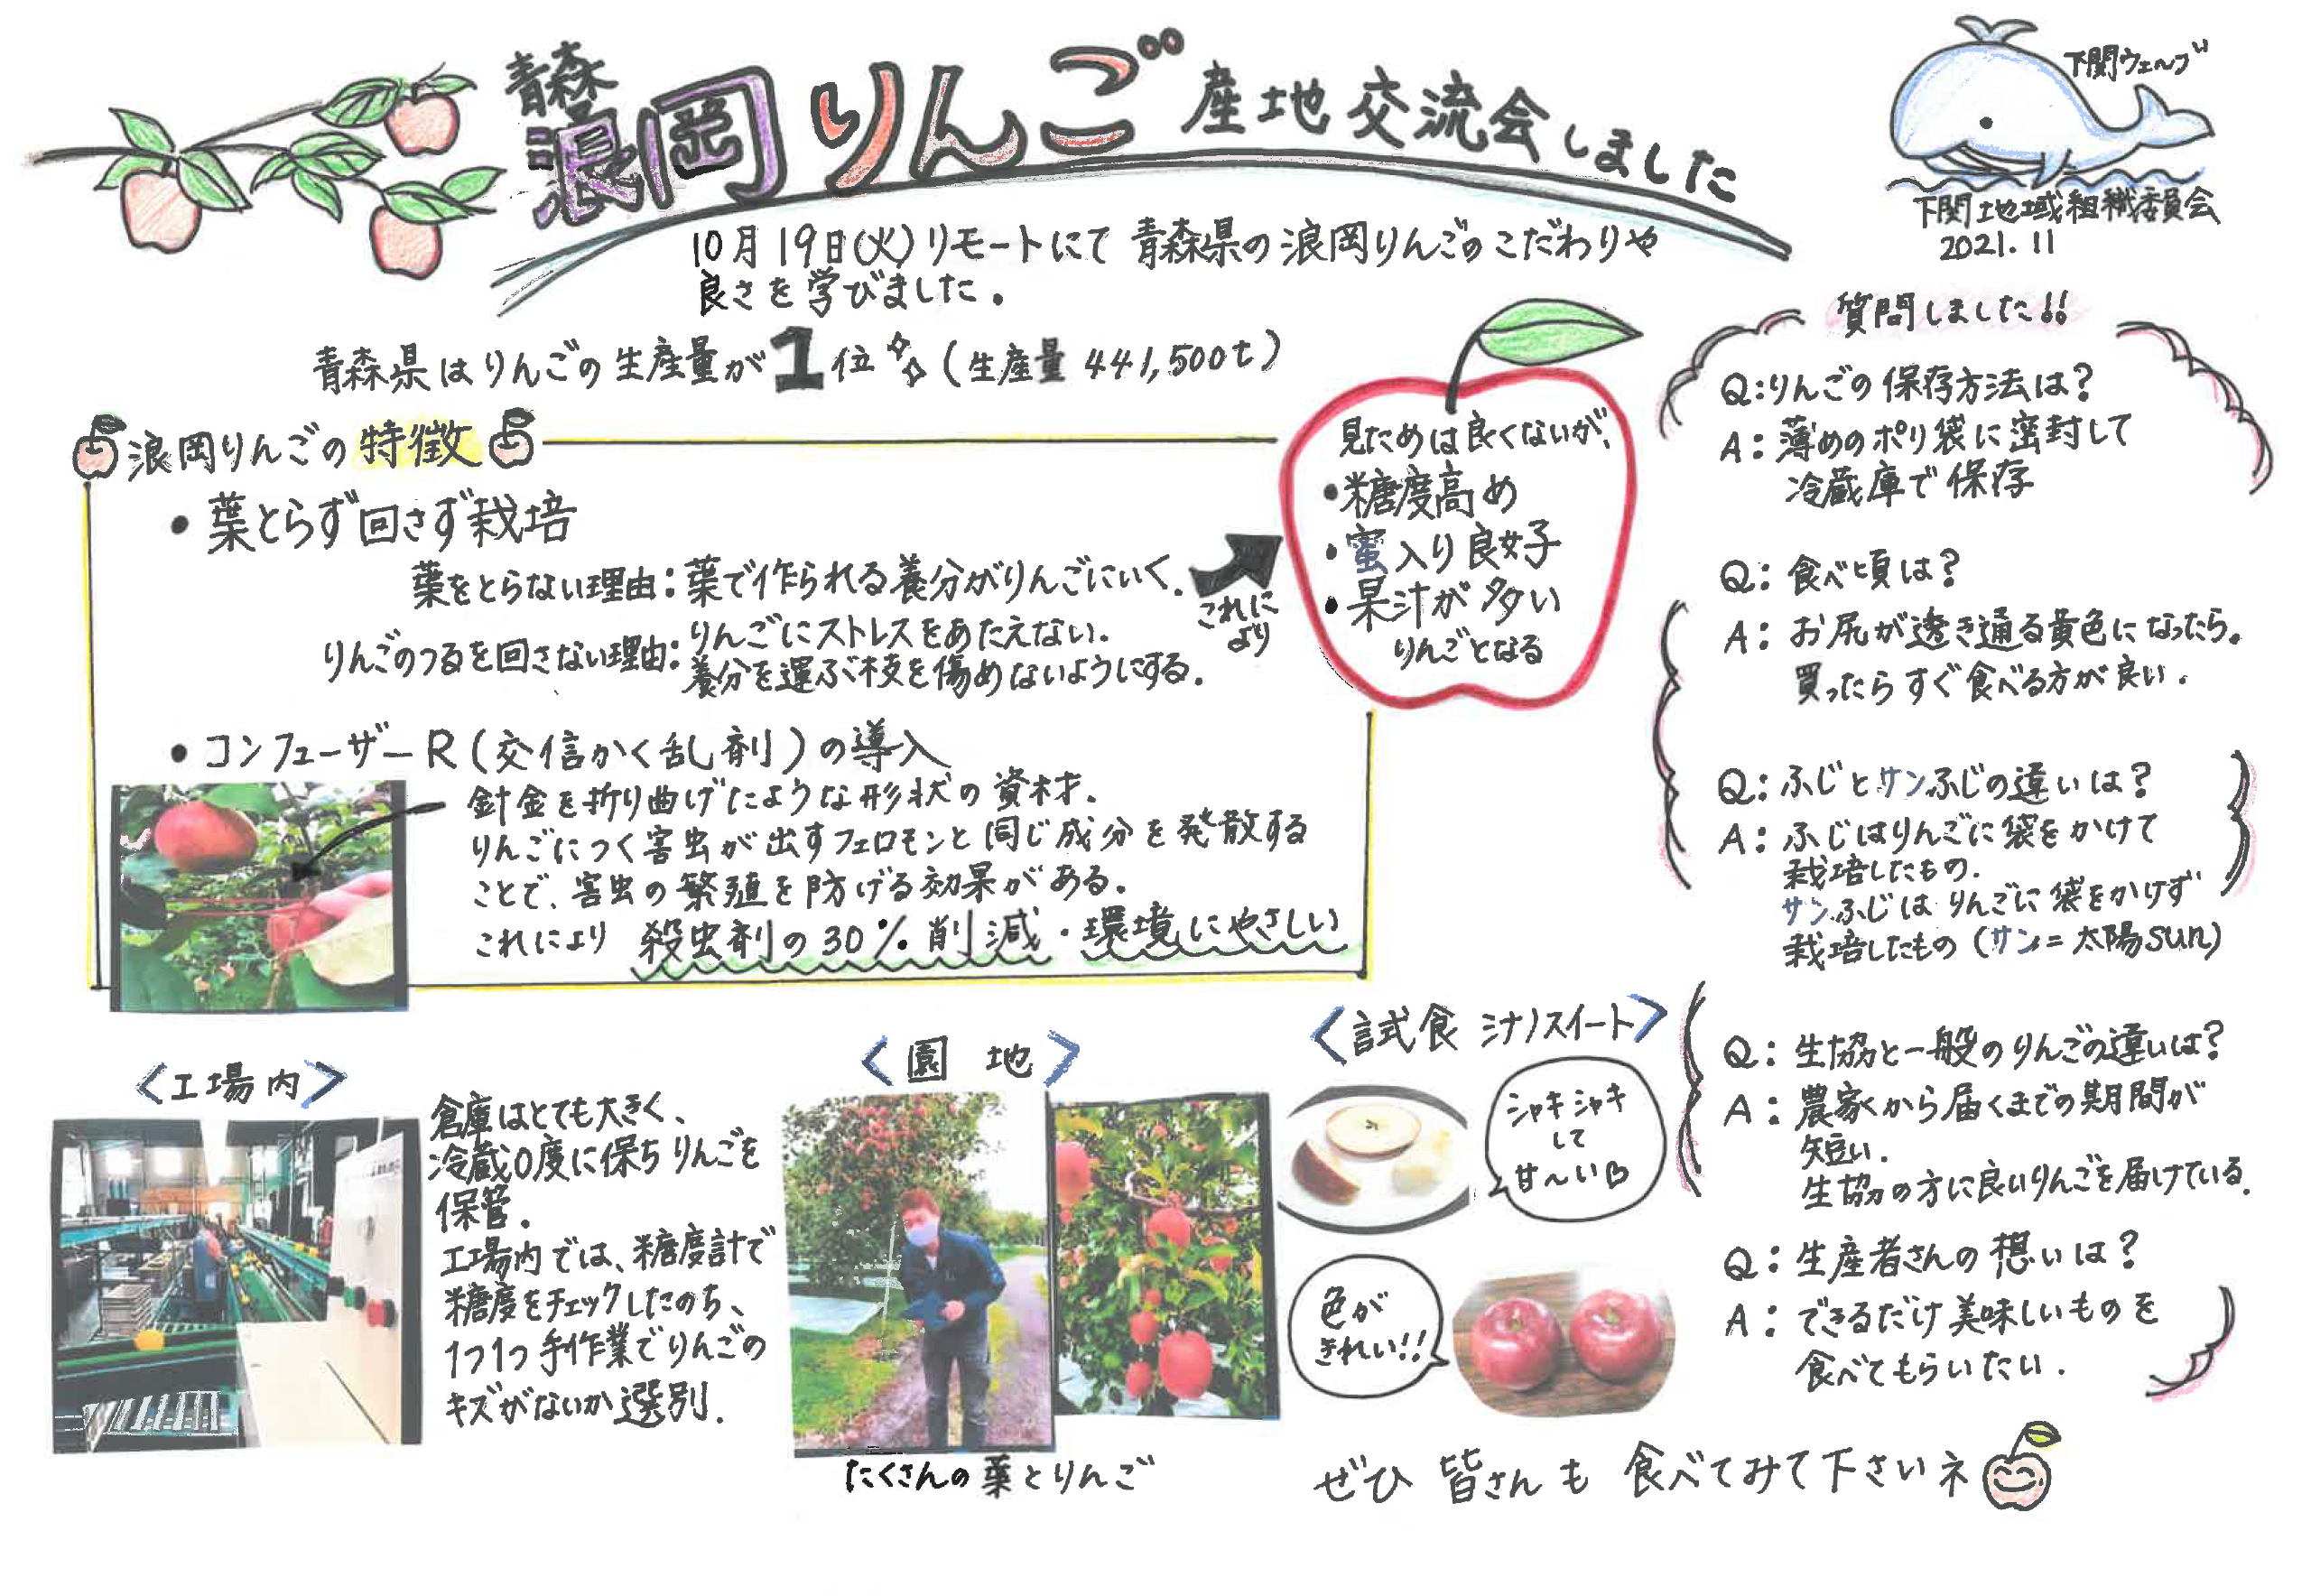 青森
浪岡りんご産地交流会しました
下関ウェーブ
下関地域組織委員会
2021.11
10月19日(火)リモートにて青森県の浪岡りんごのこだわりや
良さを学びました。
青森県はりんごの生産量が1位(生産量 441,500t)
浪岡りんごの特徴
・葉とらず回さず栽培
葉をとらない理由:葉で作られる養分がりんごにいく.
りんごのつるを回さない理由:りんごにストレスをあたえない.
養分を運ぶ枝を傷めないようにする.
これに
より
見ためは良くないが、
・糖度高め
・蜜入り良好
・果汁が多い
りんごとなる
・コンフューザーR(交信かく乱剤)の導入
針金を折り曲げたような形状の資材.
りんごにつく害虫が出すフェロモンと同じ成分を発散する
ことで、害虫の繁殖を防げる効果がある.
これにより 殺虫剤の30%削減・環境にやさしい
<工場内>
倉庫はとても大きく、
冷蔵0度に保ちりんごを
保管.
工場内では、糖度計で
糖度をチェックしたのち、
1つ1つ手作業でりんごの
キズがないか選別.
<園地>
たくさんの葉とりんご
<試食 シナノスイート>
シャキシャキ
して
甘〜い
色が
きれい!!
質問しました!!
Q:りんごの保存方法は?
A:薄めのポリ袋に密封して
冷蔵庫で保存
Q:食べ頃は?
A:お尻が透き通る黄色になったら。
買ったらすぐ食べる方が良い.
Q:ふじとサンふじの違いは?
A:ふじはりんごに袋をかけて
栽培したもの.
サンふじはりんごに袋をかけず
栽培したもの(サン=太陽sun)
Q:生協と一般のりんごの違いは?
A:農家から届くまでの期間が
短い.
生協の方に良いりんごを届けている.
Q:生産者さんの想いは?
A:できるだけ美味しいものを
食べてもらいたい.
ぜひ皆さんも食べてみて下さいネ